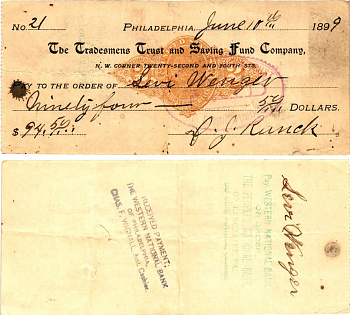 No. 21 PHILADELPHIA, June 10th 1899
The Tradesmens Trust and Saving Fund Company,
N. W. CORNER TWENTY-SECOND AND SOUTH STS.
PAY TO THE ORDER OF Levi Wenger
Ninety four — 50/ DOLLARS.
$ 94.50/
RECEIVED PAYMENT,
THE WESTERN NATIONAL BANK
OF PHILADELPHIA,
CHAS. F. WIGNALL, Act. Cashier.
Pay WESTERN NATIONAL BANK
OR ORDER
Levi Wenger